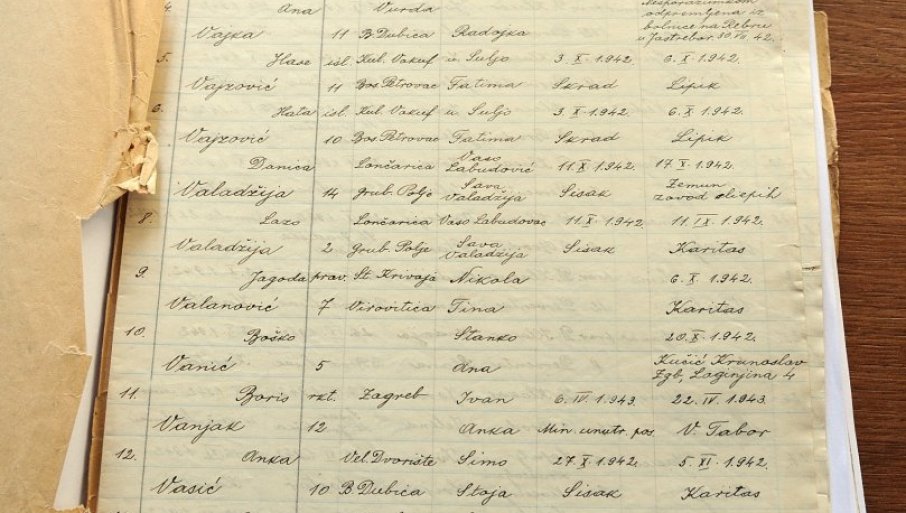 Ana Vurda Nesporazumkom
odpremljena iz
Vajka 11 B. Dubica Radojka bolnice na Rebru
u Jastrebar. 30. VII. 42.
5. Hase isl. Kul. Vakuf u. Suljo 3. X. 1942. 6. X. 1942.
Vajzović 11 Bos. Petrovac Fatima Skrad Lipik
6. Hata isl. Kul. Vakuf u. Suljo 3. X. 1942. 6. X. 1942.
Vajzović 10 Bos. Petrovac Fatima Skrad Lipik
Danica Lončarica Vaso Labudović 11 X. 1942. 17. X. 1942.
Valadžija 14 Grub. Polje Sava Valadžija Sisak Zemun zavod slijepih
8. Lazo Lončarica Vaso Labudovac 11. X. 1942. 11. IX. 1942.
Valadžija 2 Grub. Polje Sava Valadžija Sisak Karitas
9. Jagoda prav. St. Krivaja Nikola 6. X. 1942.
Valanović 7 Virovitica Tina Karitas
10. Boško Stanko 20. X. 1942.
Vanić 5 Ana Kučić Krunoslav
Zgb, Laginjina 4
11. Boris rkt. Zagreb Ivan 6. IV. 1943. 22. IV. 1943.
Vanjak 12 Anka Min. unutr. pos. V. Tabor
12. Anka Vel. Dvorište Simo 27. X. 1942. 5. XI. 1942.
Vasić 10 B. Dubica Stoja Sisak Karitas